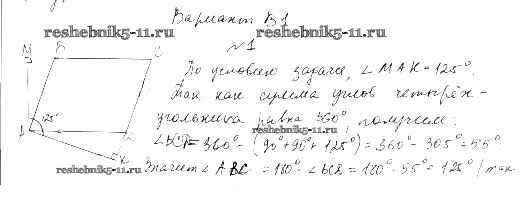 Вариант B1
reshebnik5-11.ru
reshebnik5-11.ru
№1
M B C
По условию задачи, ∠MAK=125°.
Так как сумма углов четырёх-
125°
угольника равна 360°, получем:
A
K
= 360° - (90°+90°+125°) = 360° - 305° = 55°
reshebnik5-11.ru
reshebnik5-11.ru
Значит ∠ABC = 180° - = 180° - 55° = 125° (так